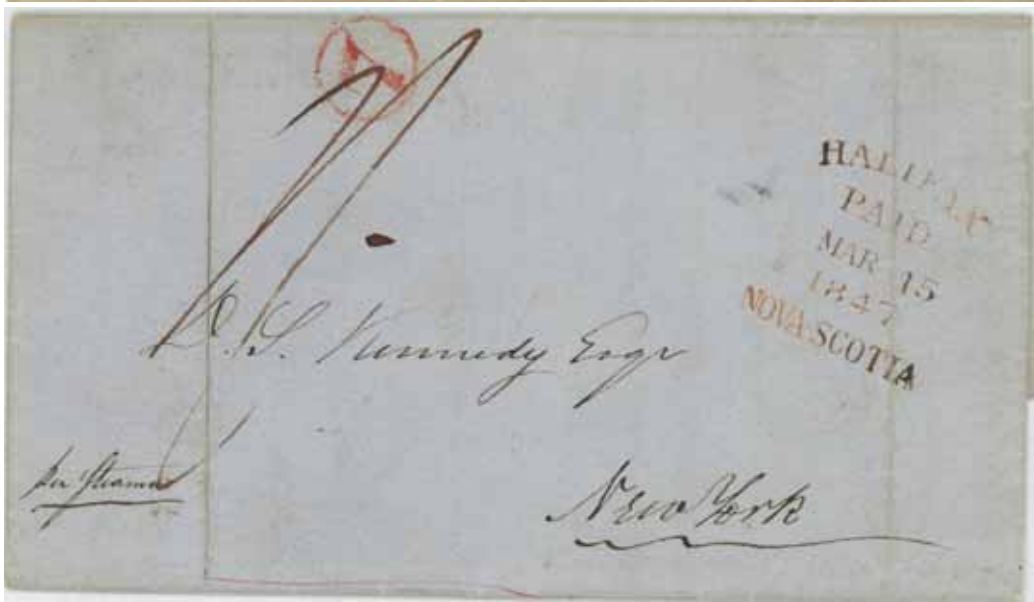 HALIFAX
PAID
MAR 15
1847
NOVA SCOTIA
D. S. Kennedy Esqr
per Steamer
New York